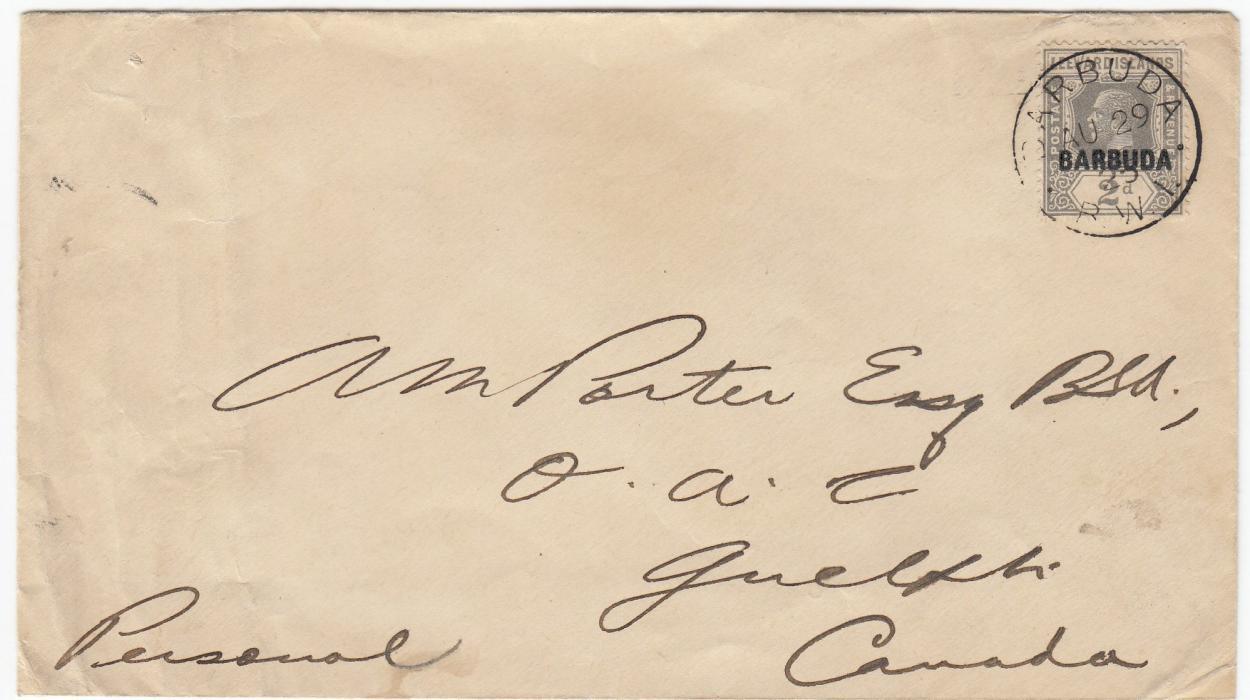 LEEWARD ISLANDS
POSTAGE & REVENUE
BARBUDA
2d
BARBUDA
AU 29
23
B.W.I.
A M Porter Esq BSA.,
O. A. C
Guelph
Personal
Canada